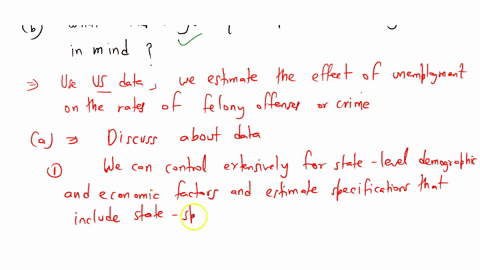 (b)
in mind ?
⇒ Use US data, we estimate the effect of unemployment
on the rates of felony offenses or crime
(a) ⇒ Discuss about data
① We can control extensively for state-level demographic
and economic factors and estimate specifications that
include state-sp